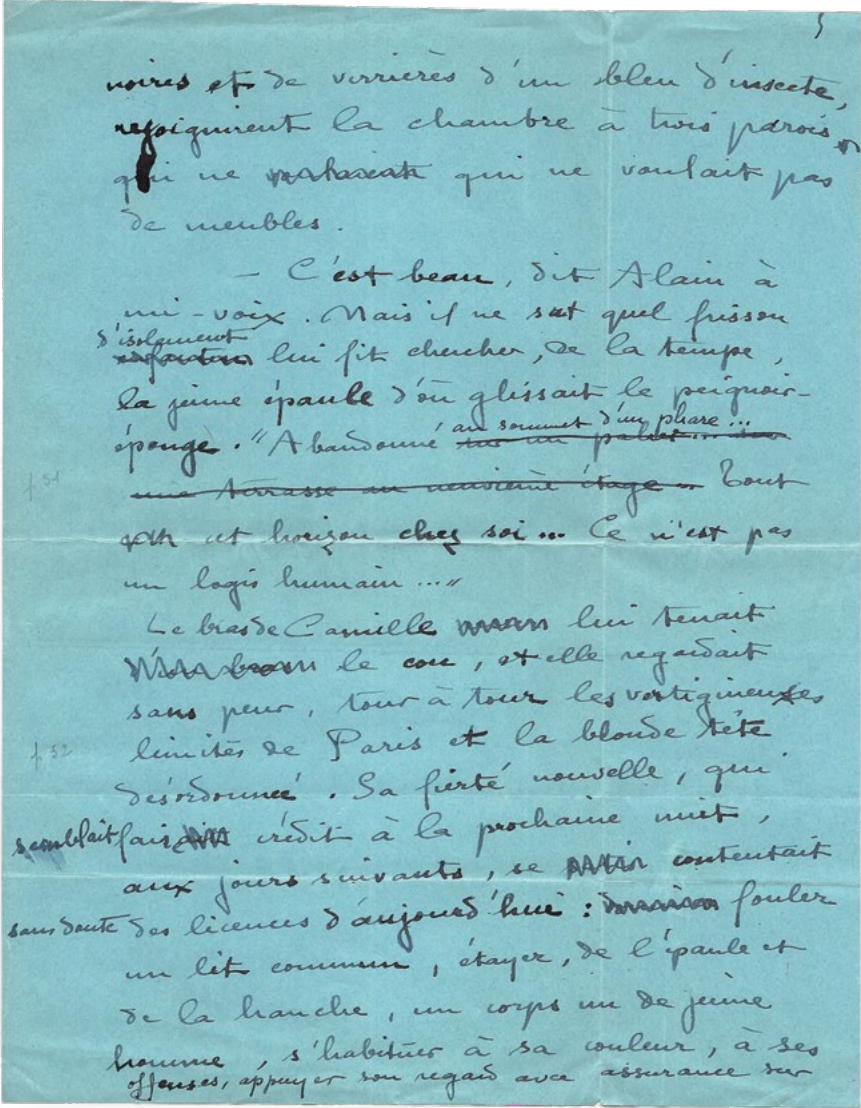 5
noires et de verrières d'un bleu d'insecte,
rejoignirent la chambre à trois parois
qui ne qui ne voulait pas
de meubles.
— C'est beau, dit Alain à
mi-voix. Mais il ne sut quel frisson
d'isolement
lui fit chercher, de la tempe,
la jeune épaule d'où glissait le peignoir-
au sommet d'un phare...
éponge. "Abandonné sur un palier... sur
p 51
une terrasse au neuvième étage... Tout
cet horizon chez soi... Ce n'est pas
un logis humain..."
Le bras de Camille lui tenait
le cou, et elle regardait
sans peur, tour à tour les vertigineuses
p 52
limites de Paris et la blonde tête
désordonnée. Sa fierté nouvelle, qui
semblait faire crédit à la prochaine nuit,
aux jours suivants, se contentait
sans doute des licences d'aujourd'hui : fouler
un lit commun, étayer, de l'épaule et
de la hanche, un corps nu de jeune
homme, s'habituer à sa couleur, à ses
offenses, appuyer son regard avec assurance sur